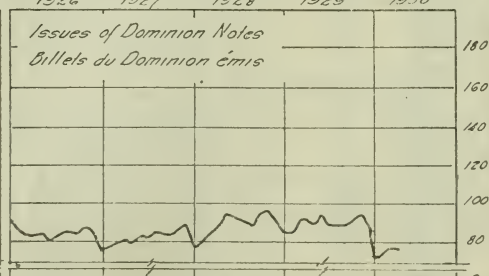 1926 1927 1928 1929 1930
Issues of Dominion Notes
Billets du Dominion émis
180
160
140
120
100
80